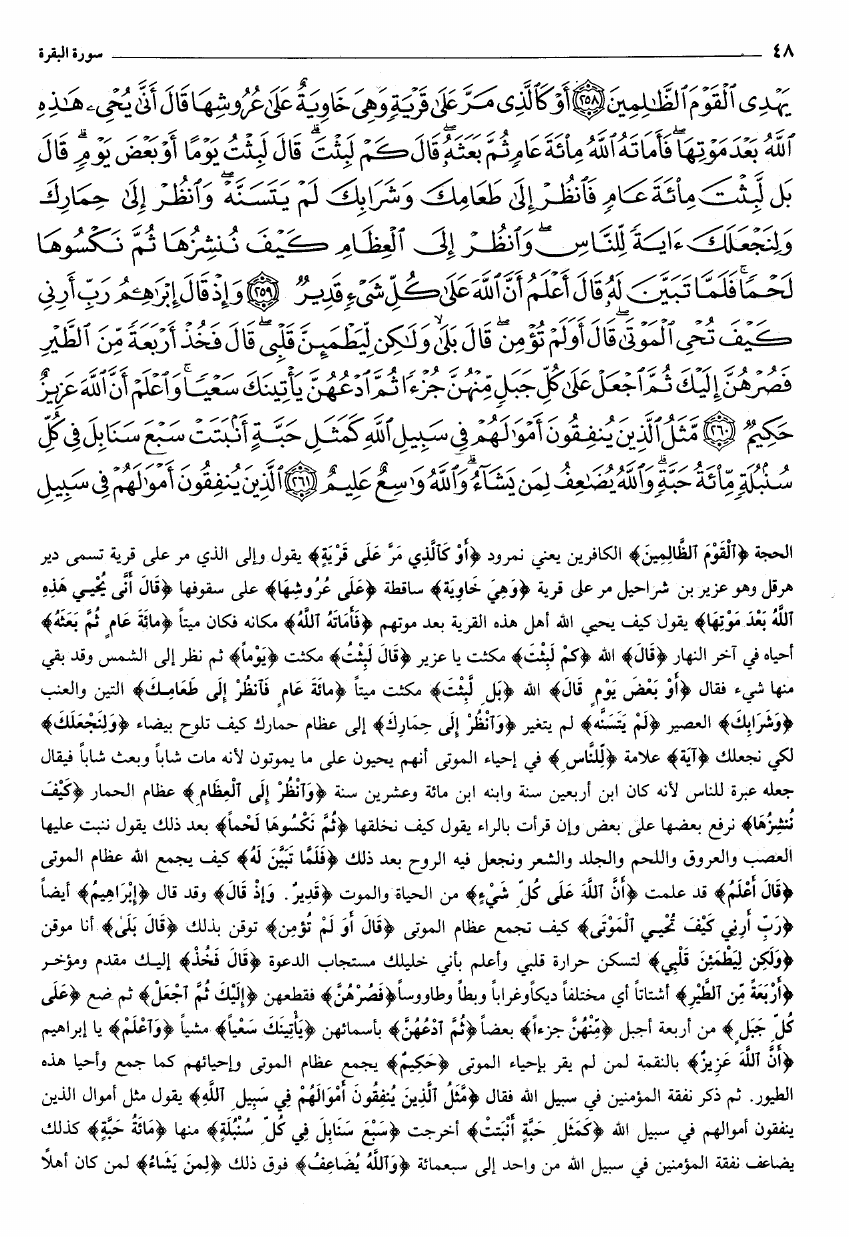 ٤٨ سورة البقرة
يَهْدِى ٱلْقَوْمَ ٱلظَّٰلِمِينَ ﴿٢٥٨﴾ أَوْ كَٱلَّذِى مَرَّ عَلَىٰ قَرْيَةٍ وَهِىَ خَاوِيَةٌ عَلَىٰ عُرُوشِهَا قَالَ أَنَّىٰ يُحْىِۦ هَٰذِهِ
ٱللَّهُ بَعْدَ مَوْتِهَا ۖ فَأَمَاتَهُ ٱللَّهُ مِا۟ئَةَ عَامٍ ثُمَّ بَعَثَهُۥ ۖ قَالَ كَمْ لَبِثْتَ ۖ قَالَ لَبِثْتُ يَوْمًا أَوْ بَعْضَ يَوْمٍ ۖ قَالَ
بَل لَّبِثْتَ مِا۟ئَةَ عَامٍ فَٱنظُرْ إِلَىٰ طَعَامِكَ وَشَرَابِكَ لَمْ يَتَسَنَّهْ ۖ وَٱنظُرْ إِلَىٰ حِمَارِكَ
وَلِنَجْعَلَكَ ءَايَةً لِّلنَّاسِ ۖ وَٱنظُرْ إِلَى ٱلْعِظَامِ كَيْفَ نُنشِزُهَا ثُمَّ نَكْسُوهَا
لَحْمًا ۚ فَلَمَّا تَبَيَّنَ لَهُۥ قَالَ أَعْلَمُ أَنَّ ٱللَّهَ عَلَىٰ كُلِّ شَىْءٍ قَدِيرٌ ﴿٢٥٩﴾ وَإِذْ قَالَ إِبْرَٰهِـۧمُ رَبِّ أَرِنِى
كَيْفَ تُحْىِ ٱلْمَوْتَىٰ ۖ قَالَ أَوَلَمْ تُؤْمِن ۖ قَالَ بَلَىٰ وَلَٰكِن لِّيَطْمَئِنَّ قَلْبِى ۖ قَالَ فَخُذْ أَرْبَعَةً مِّنَ ٱلطَّيْرِ
فَصُرْهُنَّ إِلَيْكَ ثُمَّ ٱجْعَلْ عَلَىٰ كُلِّ جَبَلٍ مِّنْهُنَّ جُزْءًا ثُمَّ ٱدْعُهُنَّ يَأْتِينَكَ سَعْيًا ۚ وَٱعْلَمْ أَنَّ ٱللَّهَ عَزِيزٌ
حَكِيمٌ ﴿٢٦٠﴾ مَّثَلُ ٱلَّذِينَ يُنفِقُونَ أَمْوَٰلَهُمْ فِى سَبِيلِ ٱللَّهِ كَمَثَلِ حَبَّةٍ أَنۢبَتَتْ سَبْعَ سَنَابِلَ فِى كُلِّ
سُنۢبُلَةٍ مِّا۟ئَةُ حَبَّةٍ ۗ وَٱللَّهُ يُضَٰعِفُ لِمَن يَشَآءُ ۗ وَٱللَّهُ وَٰسِعٌ عَلِيمٌ ﴿٢٦١﴾ ٱلَّذِينَ يُنفِقُونَ أَمْوَٰلَهُمْ فِى سَبِيلِ
الحجة ﴿ٱلْقَوْمَ ٱلظَّالِمِينَ﴾ الكافرين يعني نمرود ﴿أَوْ كَٱلَّذِي مَرَّ عَلَى قَرْيَةٍ﴾ يقول وإلى الذي مر على قرية تسمى دير
هرقل وهو عزير بن شراحيل مر على قرية ﴿وَهِيَ خَاوِيَةٌ﴾ ساقطة ﴿عَلَى عُرُوشِهَا﴾ على سقوفها ﴿قَالَ أَنَّى يُحْيِـي هَذِهِ
ٱللَّهُ بَعْدَ مَوْتِهَا﴾ يقول كيف يحيي الله أهل هذه القرية بعد موتهم ﴿فَأَمَاتَهُ ٱللَّهُ﴾ مكانه فكان ميتاً ﴿مائَةَ عَامٍ ثُمَّ بَعَثَهُ﴾
أحياه في آخر النهار ﴿قَالَ﴾ الله ﴿كَمْ لَبِثْتَ﴾ مكثت يا عزير ﴿قَالَ لَبِثْتُ﴾ مكثت ﴿يَوْماً﴾ ثم نظر إلى الشمس وقد بقي
منها شيء فقال ﴿أَوْ بَعْضَ يَوْمٍ قَالَ﴾ الله ﴿بَل لَّبِثْتَ﴾ مكثت ميتاً ﴿مائَةَ عَامٍ فَٱنظُرْ إِلَى طَعَامِـكَ﴾ التين والعنب
﴿وَشَرَابِكَ﴾ العصير ﴿لَمْ يَتَسَنَّه﴾ لم يتغير ﴿وَٱنْظُرْ إِلَى حِمَارِكَ﴾ إلى عظام حمارك كيف تلوح بيضاء ﴿وَلِنَجْعَلَكَ﴾
لكي نجعلك ﴿آيَةً﴾ علامة ﴿لِّلنَّاسِ﴾ في إحياء الموتى أنهم يحيون على ما يموتون لأنه مات شاباً وبعث شاباً فيقال
جعله عبرة للناس لأنه كان ابن أربعين سنة وابنه ابن مائة وعشرين سنة ﴿وَٱنْظُرْ إِلَى ٱلْعِظَامِ﴾ عظام الحمار ﴿كَيْفَ
نُنْشِزُهَا﴾ نرفع بعضها على بعض وإن قرأت بالراء يقول كيف نخلقها ﴿ثُمَّ نَكْسُوهَا لَحْماً﴾ بعد ذلك يقول ننبت عليها
العصب والعروق واللحم والجلد والشعر ونجعل فيه الروح بعد ذلك ﴿فَلَمَّا تَبَيَّنَ لَهُ﴾ كيف يجمع الله عظام الموتى
﴿قَالَ أَعْلَمُ﴾ قد علمت ﴿أَنَّ ٱللَّهَ عَلَى كُلِّ شَيْءٍ﴾ من الحياة والموت ﴿قَدِيرٌ. وَإِذْ قَالَ﴾ وقد قال ﴿إِبْرَاهِيمُ﴾ أيضاً
﴿رَبِّ أَرِنِي كَيْفَ تُحْيِـي ٱلْمَوْتَى﴾ كيف تجمع عظام الموتى ﴿قَالَ أَوَ لَمْ تُؤْمِن﴾ توقن بذلك ﴿قَالَ بَلَىٰ﴾ أنا موقن
﴿وَلَكِن لِيَطْمَئِنَ قَلْبِي﴾ لتسكن حرارة قلبي وأعلم بأني خليلك مستجاب الدعوة ﴿قَالَ فَخُذْ﴾ إليـك مقدم ومؤخـر
﴿أَرْبَعَةً مِّنَ ٱلطَّيْرِ﴾ أشتاتاً أي مختلفاً ديكاً وغراباً وبطاً وطاووساً ﴿فَصُرْهُنَّ﴾ فقطعهن ﴿إِلَيْكَ ثُمَّ ٱجْعَلْ﴾ ثم ضع ﴿عَلَى
كُلِّ جَبَلٍ﴾ من أربعة أجبل ﴿مِّنْهُنَّ جزءاً﴾ بعضاً ﴿ثُمَّ ٱدْعُهُنَّ﴾ بأسمائهن ﴿يَأْتِينَكَ سَعْياً﴾ مشياً ﴿وَٱعْلَمْ﴾ يا إبراهيم
﴿أَنَّ ٱللَّهَ عَزِيزٌ﴾ بالنقمة لمن لم يقر بإحياء الموتى ﴿حَكِيمٌ﴾ يجمع عظام الموتى وإحيائهم كما جمع وأحيا هذه
الطيور. ثم ذكر نفقة المؤمنين في سبيل الله فقال ﴿مَّثَلُ ٱلَّذِينَ يُنْفِقُونَ أَمْوَالَهُمْ فِي سَبِيلِ ٱللَّهِ﴾ يقول مثل أموال الذين
ينفقون أموالهم في سبيل الله ﴿كَمَثَلِ حَبَّةٍ أَنْبَتَتْ﴾ أخرجت ﴿سَبْعَ سَنَابِلَ فِي كُلِّ سُنْبُلَةٍ﴾ منها ﴿مَائَةُ حَبَّةٍ﴾ كذلك
يضاعف نفقة المؤمنين في سبيل الله من واحد إلى سبعمائة ﴿وَٱللَّهُ يُضَاعِفُ﴾ فوق ذلك ﴿لِمنَ يَشَاءُ﴾ لمن كان أهلاً